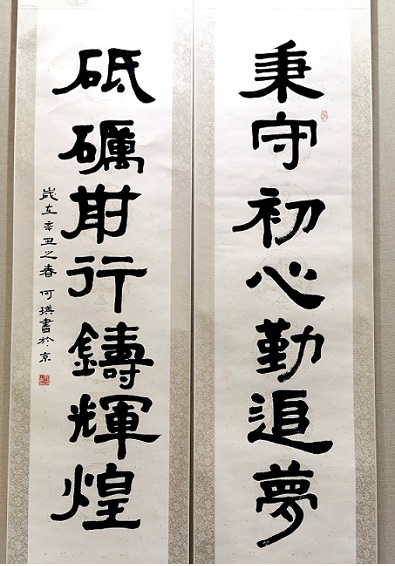 秉守初心勤追夢
砥礪前行鑄輝煌
歲在辛丑之春可瑛書於京